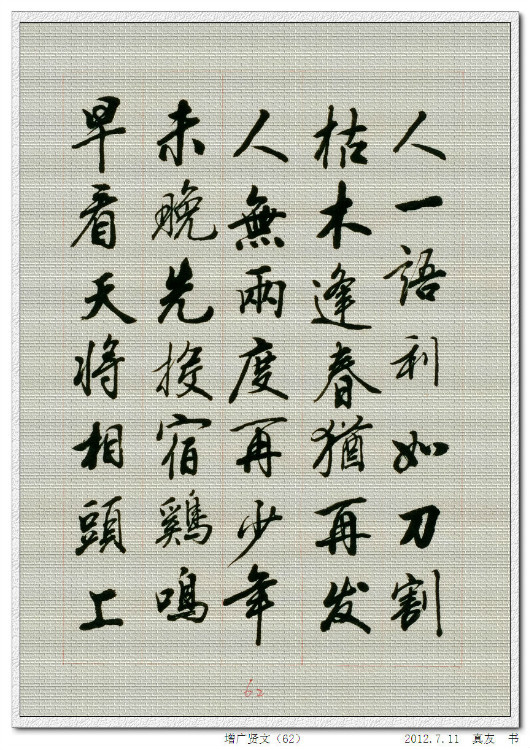 人一語利如刀割
枯木逢春猶再发
人無兩度再少年
未晚先投宿鷄鳴
早看天将相頭上
62
增广贤文（62）
2012.7.11 真友 书